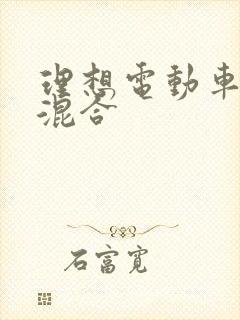 理想電動車
混合
石富寬